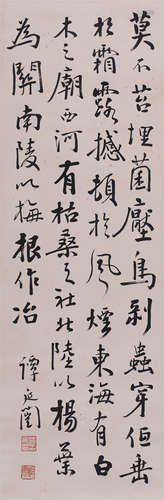 莫不苔埋菌壓鳥剝蟲穿低垂
於霜露撼頓於風煙東海有白
木之廟西河有枯桑之社北陸以楊葉
為關南陵以梅根作冶
譚延闓